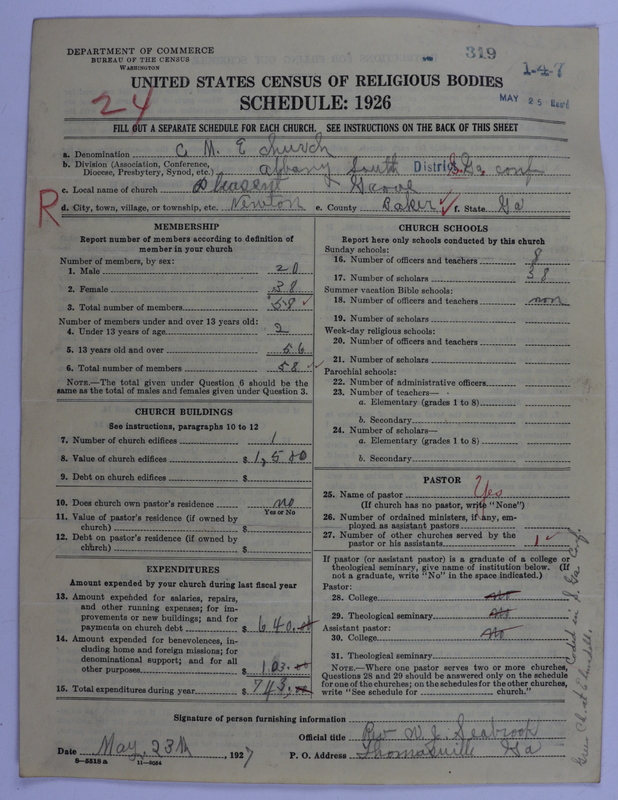 DEPARTMENT OF COMMERCE
BUREAU OF THE CENSUS
WASHINGTON
319
1-4-7
MAY 25 Rec'd
24
UNITED STATES CENSUS OF RELIGIOUS BODIES
SCHEDULE: 1926
FILL OUT A SEPARATE SCHEDULE FOR EACH CHURCH. SEE INSTRUCTIONS ON THE BACK OF THIS SHEET
a. Denomination C M E Church
b. Division (Association, Conference, Diocese, Presbytery, Synod, etc.) Albany South District Ga conf
c. Local name of church Pleasent Grove
R
d. City, town, village, or township, etc. Newton e. County Baker f. State Ga
MEMBERSHIP
Report number of members according to definition of
member in your church
Number of members, by sex:
1. Male 20
2. Female 38
3. Total number of members 58
Number of members under and over 13 years old:
4. Under 13 years of age 2
5. 13 years old and over 56
6. Total number of members 58
NOTE.—The total given under Question 6 should be the
same as the total of males and females given under Question 3.
CHURCH BUILDINGS
See instructions, paragraphs 10 to 12
7. Number of church edifices 1
8. Value of church edifices $ 1,500
9. Debt on church edifices $
10. Does church own pastor's residence no
Yes or No
11. Value of pastor's residence (if owned by
church) $
12. Debt on pastor's residence (if owned by
church) $
EXPENDITURES
Amount expended by your church during last fiscal year
13. Amount expended for salaries, repairs,
and other running expenses; for im-
provements or new buildings; and for
payments on church debt $ 640.
14. Amount expended for benevolences, in-
cluding home and foreign missions; for
denominational support; and for all
other purposes $ 103.
15. Total expenditures during year $ 743.
CHURCH SCHOOLS
Report here only schools conducted by this church
Sunday schools:
16. Number of officers and teachers 8
17. Number of scholars 38
Summer vacation Bible schools:
18. Number of officers and teachers non
19. Number of scholars
Week-day religious schools:
20. Number of officers and teachers
21. Number of scholars
Parochial schools:
22. Number of administrative officers
23. Number of teachers—
a. Elementary (grades 1 to 8)
b. Secondary
24. Number of scholars—
a. Elementary (grades 1 to 8)
b. Secondary
PASTOR
25. Name of pastor Yes
(If church has no pastor, write "None")
26. Number of ordained ministers, if any, em-
ployed as assistant pastors
27. Number of other churches served by the
pastor or his assistants 1
If pastor (or assistant pastor) is a graduate of a college or
theological seminary, give name of institution below. (If
not a graduate, write "No" in the space indicated.)
Pastor:
28. College No
29. Theological seminary No
Assistant pastor:
30. College No
31. Theological seminary
NOTE.—Where one pastor serves two or more churches,
Questions 28 and 29 should be answered only on the schedule
for one of the churches; on the schedules for the other churches,
write "See schedule for church."
Signature of person furnishing information
Official title Rev W. J. Seabrook
Date May, 23th, 1927 P. O. Address Thomasville Ga
8-5518a 11-9034